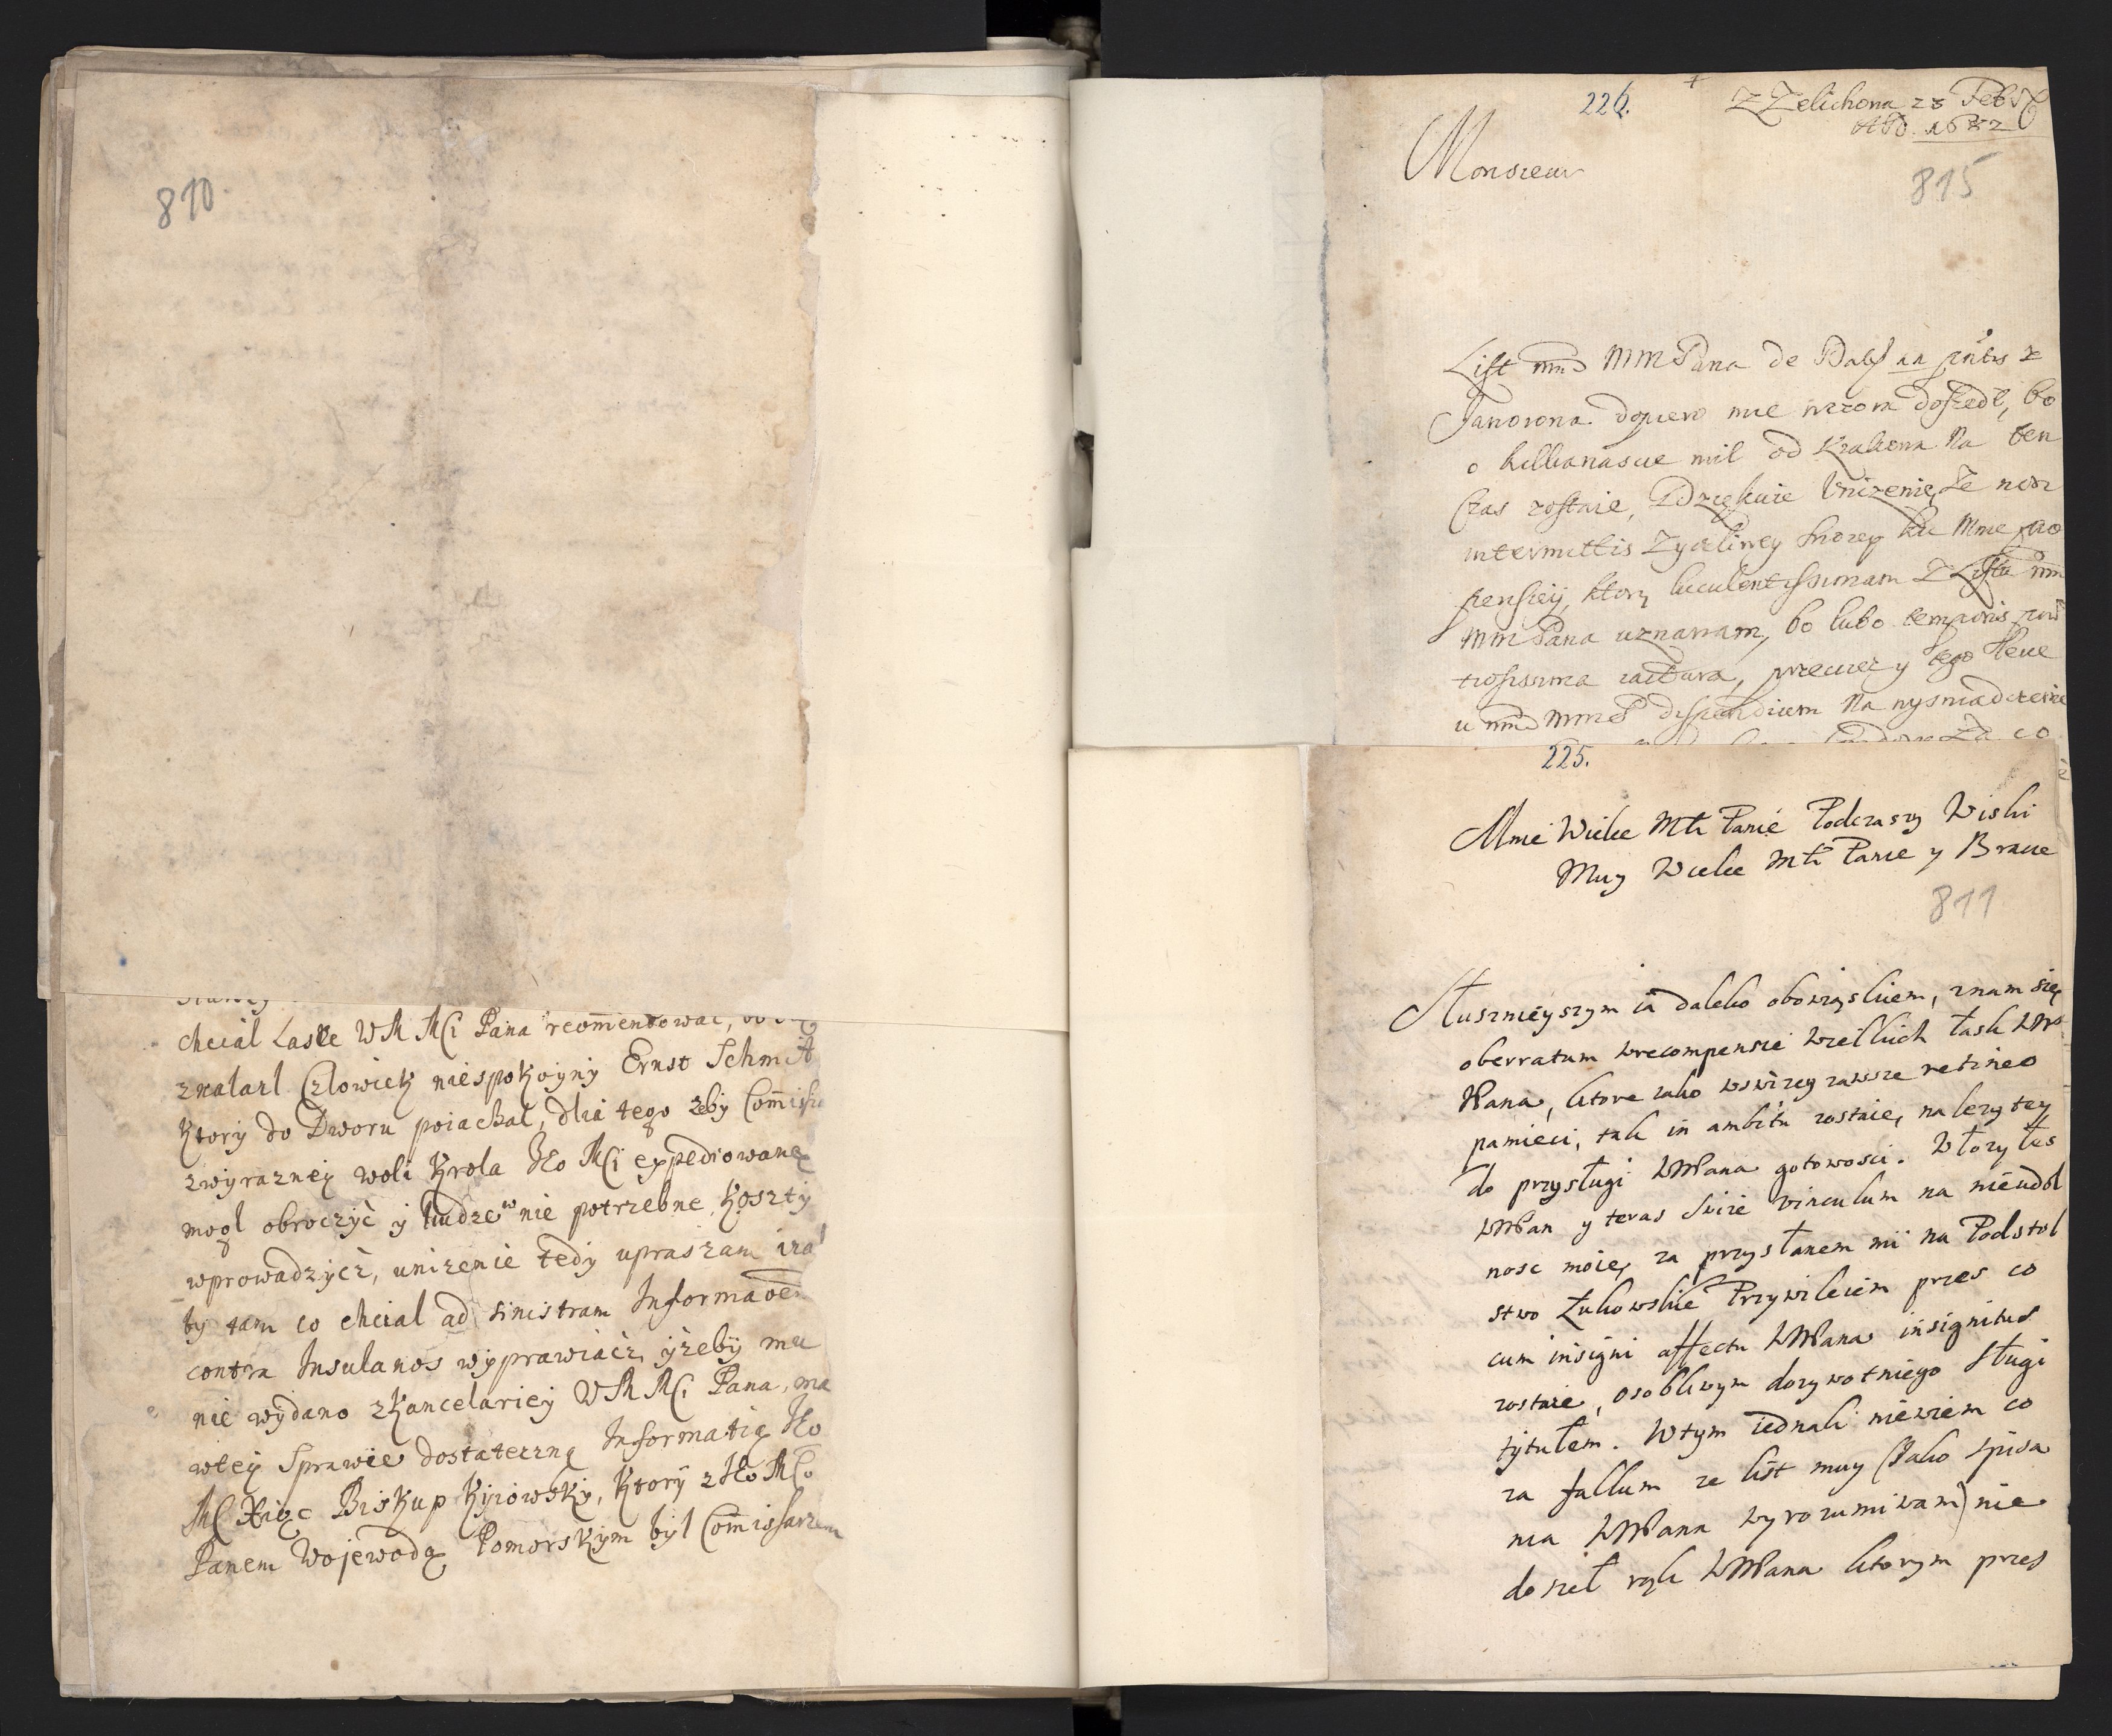 810
chciał Laske WM MCi Pana recomendować,
znalazl Człowiek niespokoyny Ernst Schmit
Ktory do Dworu poiachał, dla tego zeby
zwyrazney woli Krola Jeo MCi expediowaną
mogl obroczyć y ludze nie potrzebne Koszty
wprowadzycz, unizenie tedy upraszam
by tam co chciał ad sinistram
contra Insulanos wyprawiacz, yzeby mu
nie wydano zKancelariey WM MCi Pana, ma
wtey Sprawie dostateczną Informatią Jeo
MC Xiąc Biskup Kyiowsky, Ktory z Jeo MCo
Panem Wojewodą Pomorskym był Comissarzem
226.
Z Zelichowa 28
Monsieur
815
List MM Pana de
Janowona dopiero mie wczora doszedł, bo
o kilkanascie mil od Krakowa Na ten
Czas zostaie, Dziękuie Unizenie, Ze non
intermittis Zyczliwey Swozey ku Mnie pro
pensiey, ktorą luculentissimam Z Listu
MM Pana uznawam, bo lubo temporis
tiosissima iactura, przeciez y tego
u dispendium Na wyswiadczenie
225.
Mnie Wielce Mti Panie Podczaszy Wiski
Muy Wielce Mti Panie y Bracie
811
Słusznieyszym ia daleko obowiąskiem, znam się
oberratum wrecompensie wielkich łask
Pana, ktore iako wswizey zawsze retineo
pamieci, tak in ambitu zostaie, nalezytey
do przysługi WMPana gotowosci. Wtory tes
WMPan y teras vinculum na nieudol
nosc moie, za przysłanem mi na Podstol
stwo Łukowskie Przywileiem przes co
cum insigni affectu WMPana insignitus
zostaie, osobliwym dozywotniego sługi
tytułem. Wtym iednak niewiem co
za fallum ze list muy (Jako spisa
nia WMPana wyrozumiwam) nie
doszeł rąk WMPana ktorym przes